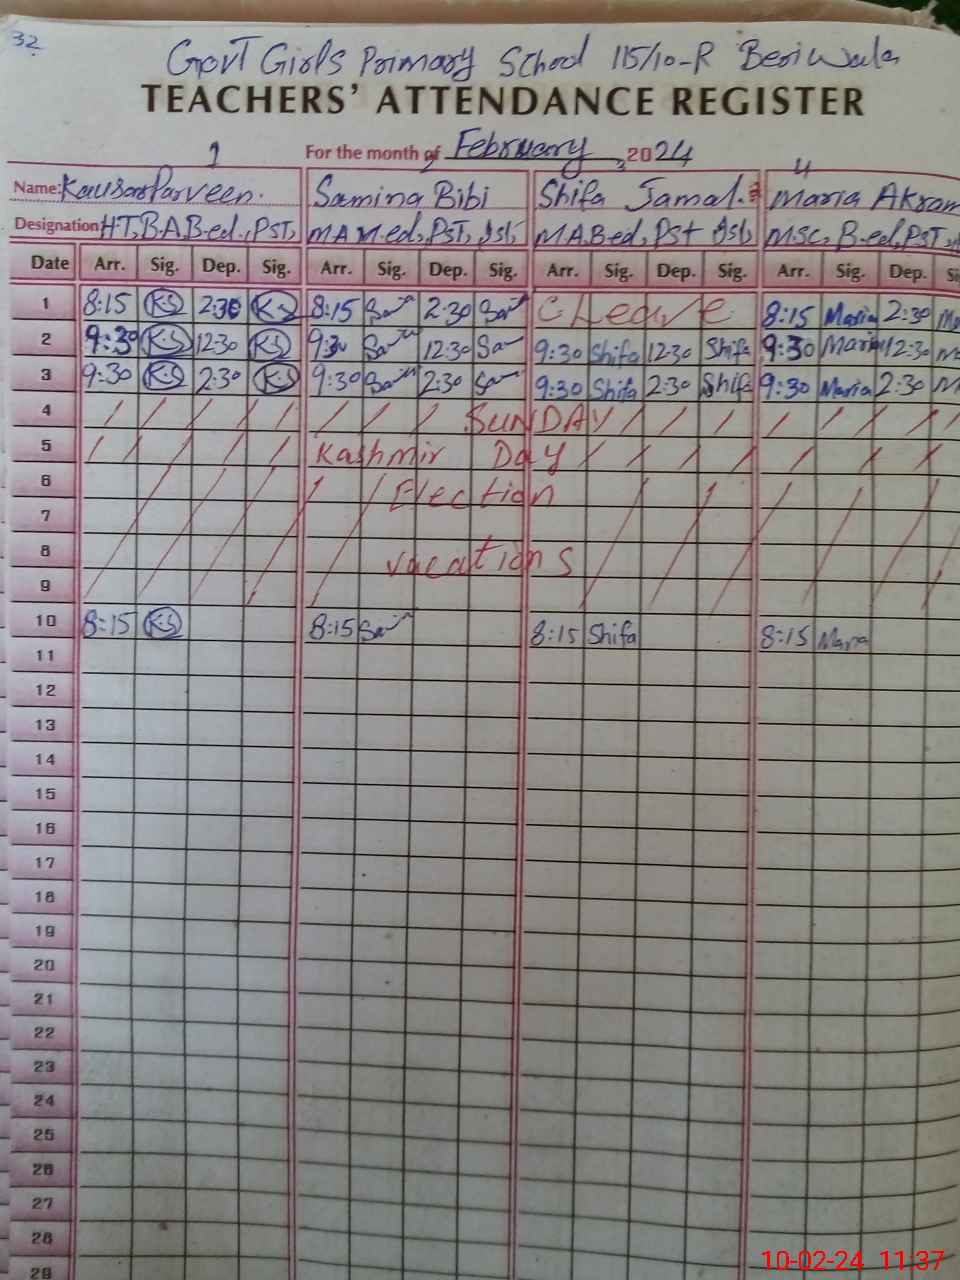 32
Govt Girls Primary School 115/10-R Beriwala
TEACHERS' ATTENDANCE REGISTER
For the month of February 2024
1 2 3 4
Name: Kausar Parveen. Samina Bibi Shifa Jamal. Maria Akram
Designation H.T, B.A B.ed., PST, M A M.ed, PST, M A B.ed, PSt M.SC, B.ed, PST,
Date Arr. Sig. Dep. Sig. Arr. Sig. Dep. Sig. Arr. Sig. Dep. Sig. Arr. Sig. Dep.
1 8:15 K.S 2:30 K.S 8:15 2:30 C Leave 8:15 Maria 2:30
2 9:30 K.S 12:30 K.S 9:30 12:30 9:30 Shifa 12:30 Shifa 9:30 Maria 12:30
3 9:30 K.S 2:30 K.S 9:30 2:30 9:30 Shifa 2:30 Shifa 9:30 Maria 2:30
4 SUNDAY
5 Kashmir Day
6 Election
7
8 vacations
9
10 8:15 K.S 8:15 8:15 Shifa 8:15 Maria
11
12
13
14
15
16
17
18
19
20
21
22
23
24
25
26
27
28
29
10-02-24 11:37